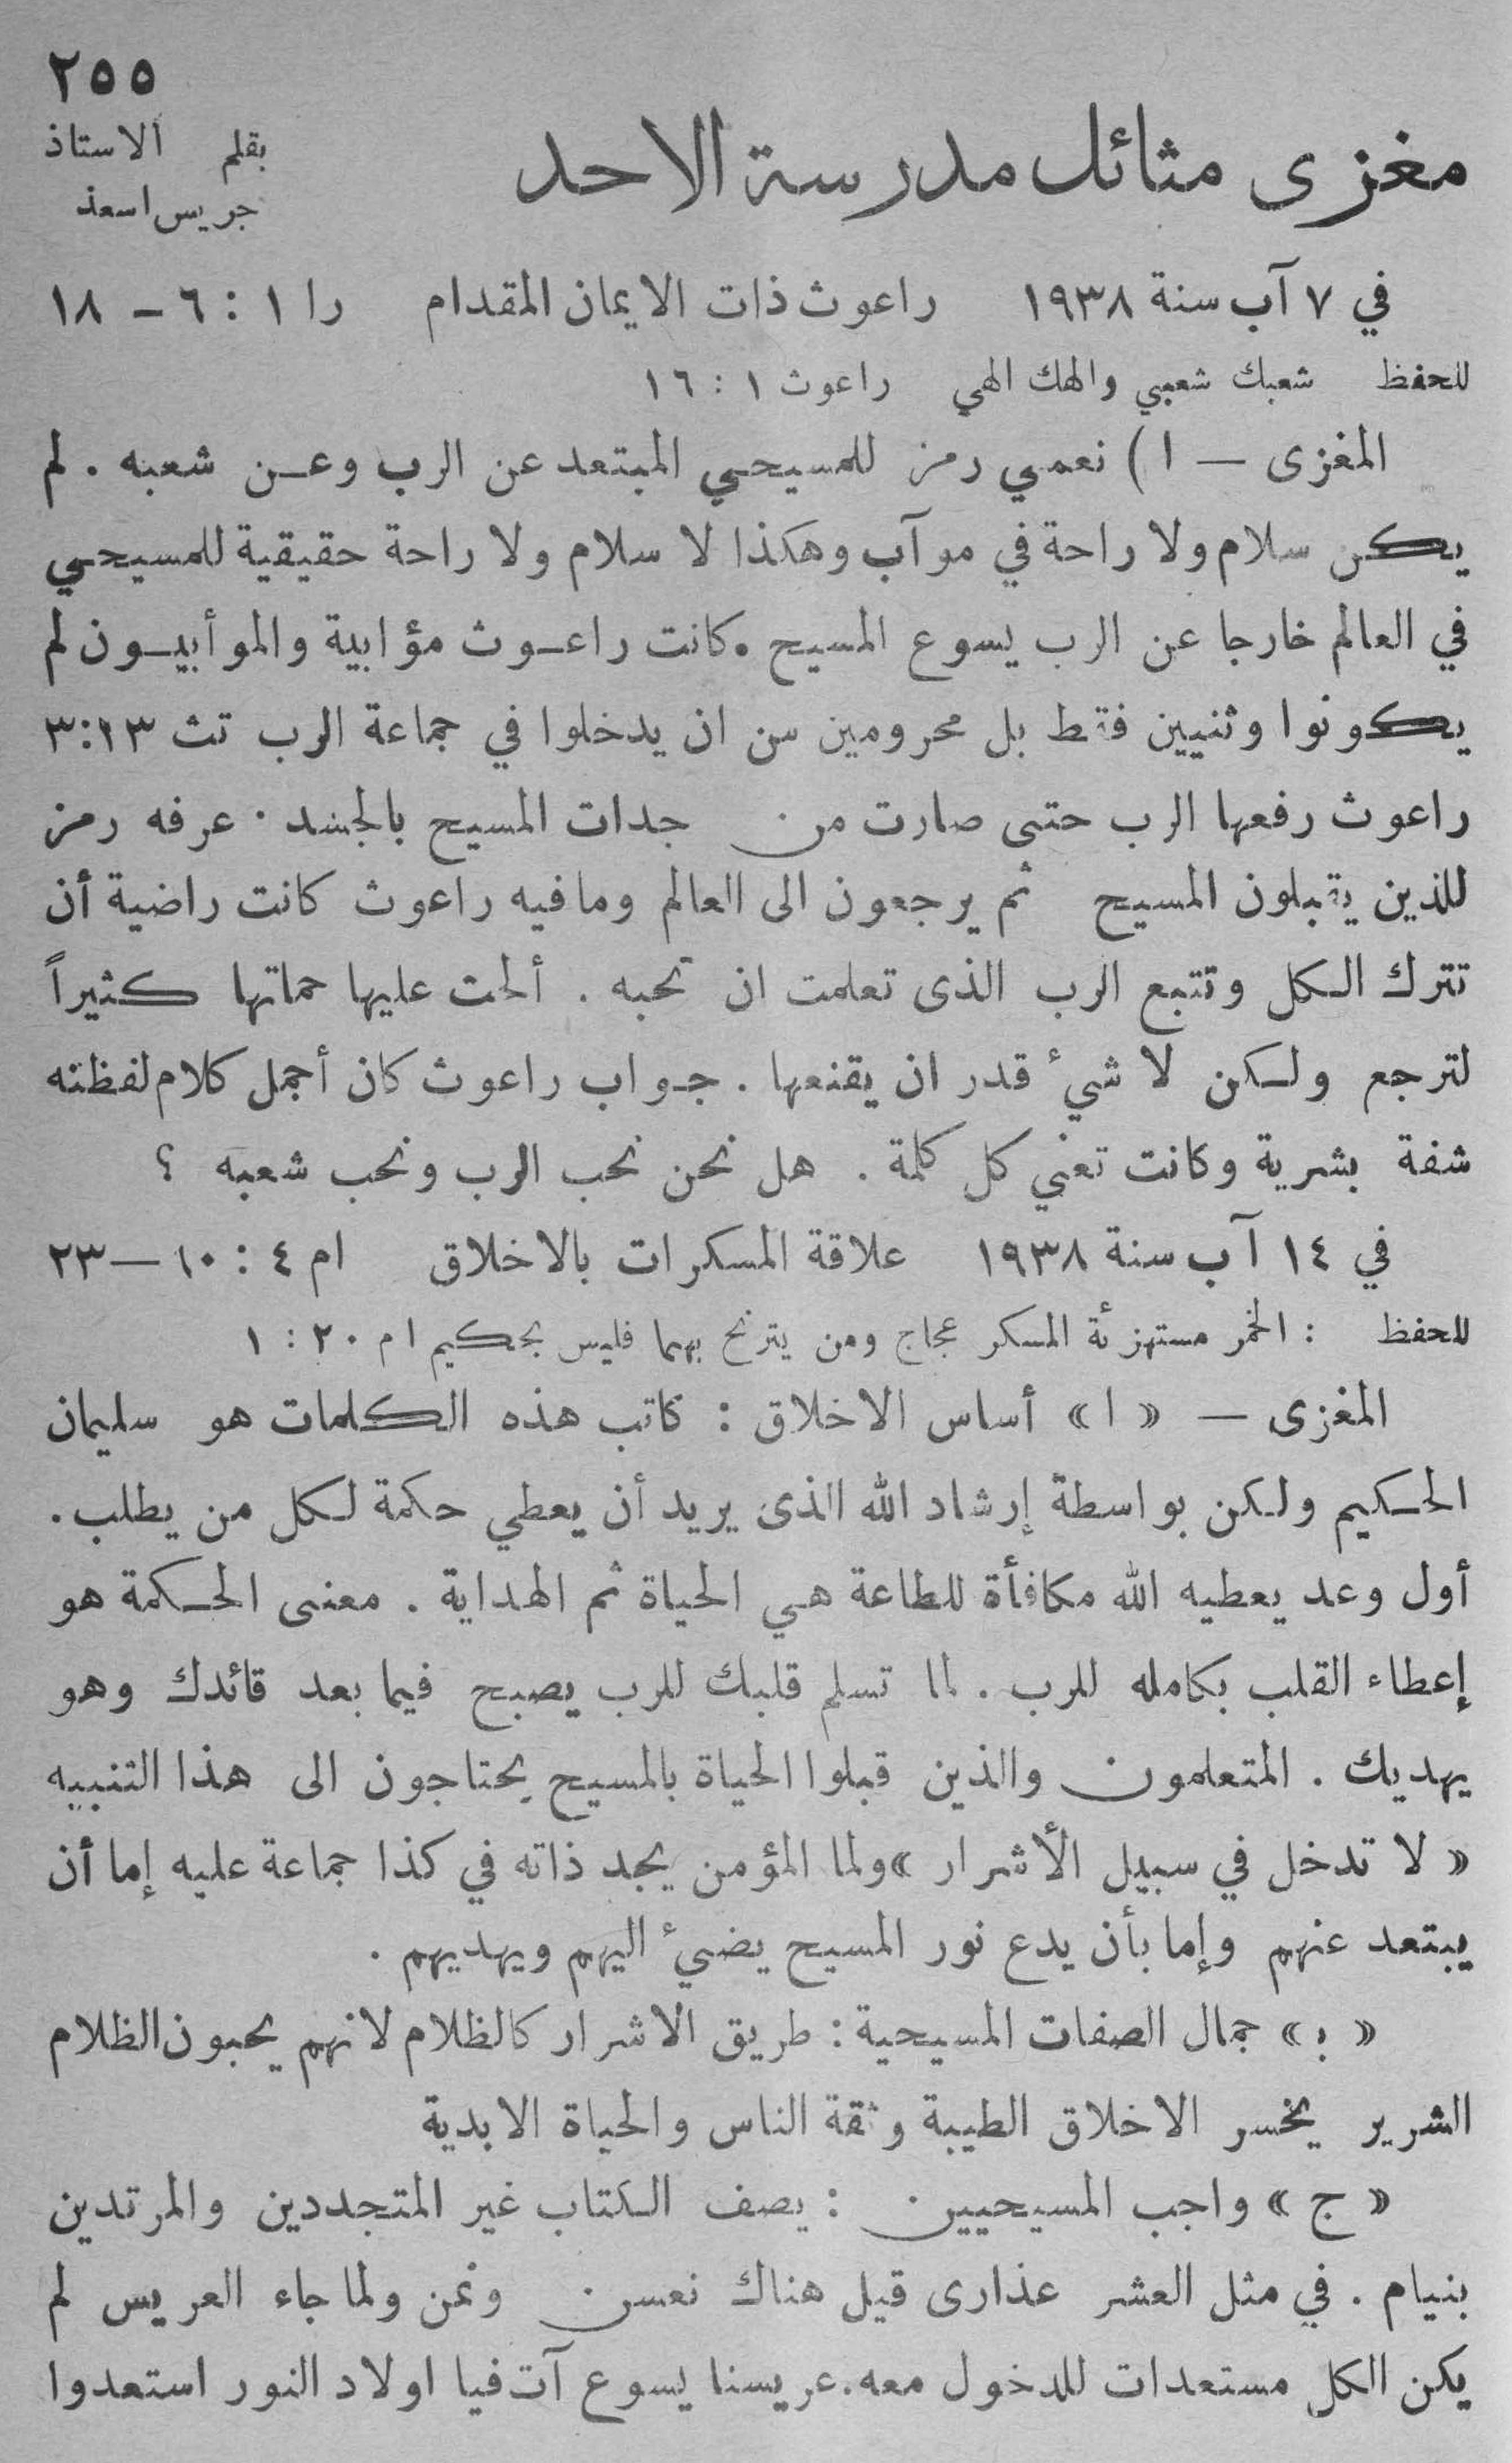 ٢٥٥
مغزى مثائل مدرسة الاحد
بقلم الاستاذ
جريس اسعد
في ٧ آب سنة ١٩٣٨ راعوث ذات الايمان المقدام را ١ : ٦ – ١٨
للحفظ شعبك شعبي والهك الهي راعوث ١ : ١٦
المغزى – ا) نعمي رمز للمسيحي المبتعد عن الرب وعن شعبه . لم
يكن سلام ولا راحة في موآب وهكذا لا سلام ولا راحة حقيقية للمسيحي
في العالم خارجا عن الرب يسوع المسيح . كانت راعوث مؤابية والموأبيون لم
يكونوا وثنيين فقط بل محرومين من ان يدخلوا في جماعة الرب تث ٣:١٣
راعوث رفعها الرب حتى صارت من جدات المسيح بالجسد . عرفه رمز
للذين يقبلون المسيح ثم يرجعون الى العالم وما فيه راعوث كانت راضية أن
تترك الكل وتتبع الرب الذى تعلمت ان تحبه . ألحت عليها حماتها كثيراً
لترجع ولكن لا شئ قدر ان يقنعها . جواب راعوث كان أجمل كلام لفظته
شفة بشرية وكانت تعني كل كلمة . هل نحن نحب الرب ونحب شعبه ؟
في ١٤ آب سنة ١٩٣٨ علاقة المسكرات بالاخلاق ام ٤ : ١٠ — ٢٣
للحفظ : الخمر مستهزئة المسكر عجاج ومن يترنح بهما فليس بحكيم ام ٢٠ : ١
المغزى – « ا » أساس الاخلاق : كاتب هذه الكلمات هو سليمان
الحكيم ولكن بواسطة إرشاد الله الذى يريد أن يعطي حكمة لكل من يطلب .
أول وعد يعطيه الله مكافأة للطاعة هي الحياة ثم الهداية . معنى الحكمة هو
إعطاء القلب بكامله للرب . لما تسلم قلبك للرب يصبح فيما بعد قائدك وهو
يهديك . المتعلمون والذين قبلوا الحياة بالمسيح يحتاجون الى هذا التنبيه
« لا تدخل في سبيل الأشرار » ولما المؤمن يجد ذاته في كذا جماعة عليه إما أن
يبتعد عنهم وإما بأن يدع نور المسيح يضئ اليهم ويهديهم .
« ب » جمال الصفات المسيحية : طريق الاشرار كالظلام لانهم يحبون الظلام
الشرير يخسر الاخلاق الطيبة وثقة الناس والحياة الابدية
« ج » واجب المسيحيين : يصف الكتاب غير المتجددين والمرتدين
بنيام . في مثل العشر عذارى قيل هناك نعسن ونمن ولما جاء العريس لم
يكن الكل مستعدات للدخول معه . عريسنا يسوع آت فيا اولاد النور استعدوا